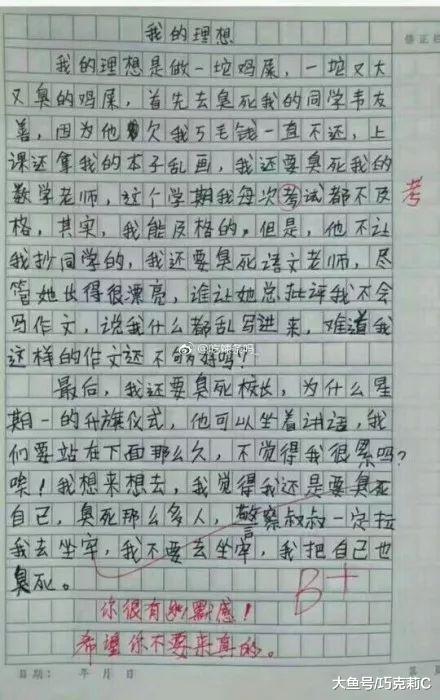 我的理想
我的理想是做一坨鸡屎，一坨又大
又臭的鸡屎，首先去臭死我的同学韦友
善，因为他欠我5毛钱一直不还，上
课还拿我的本子乱画，我还要臭死我的
数学老师，这个学期我每次考试都不及
格，其实，我能及格的，但是，他不让
我抄同学的，我还要臭死语文老师，尽
管她长得很漂亮，谁让她总批评我不会
写作文，说我什么都乱写进来，难道我
这样的作文还不够好吗？
最后，我还要臭死校长，为什么星
期一的升旗仪式，他可以坐着讲话，我
们要站在下面那么久，不觉得我很累吗？
唉！我想来想去，我觉得我还是要臭死
自己，臭死那么多人，警察叔叔一定拉
我去坐牢，我不要去坐牢，我把自己也
臭死。
考
B+
你很有幽默感！
希望你不要来真的。
日期： 年 月 日
大鱼号/巧克莉C